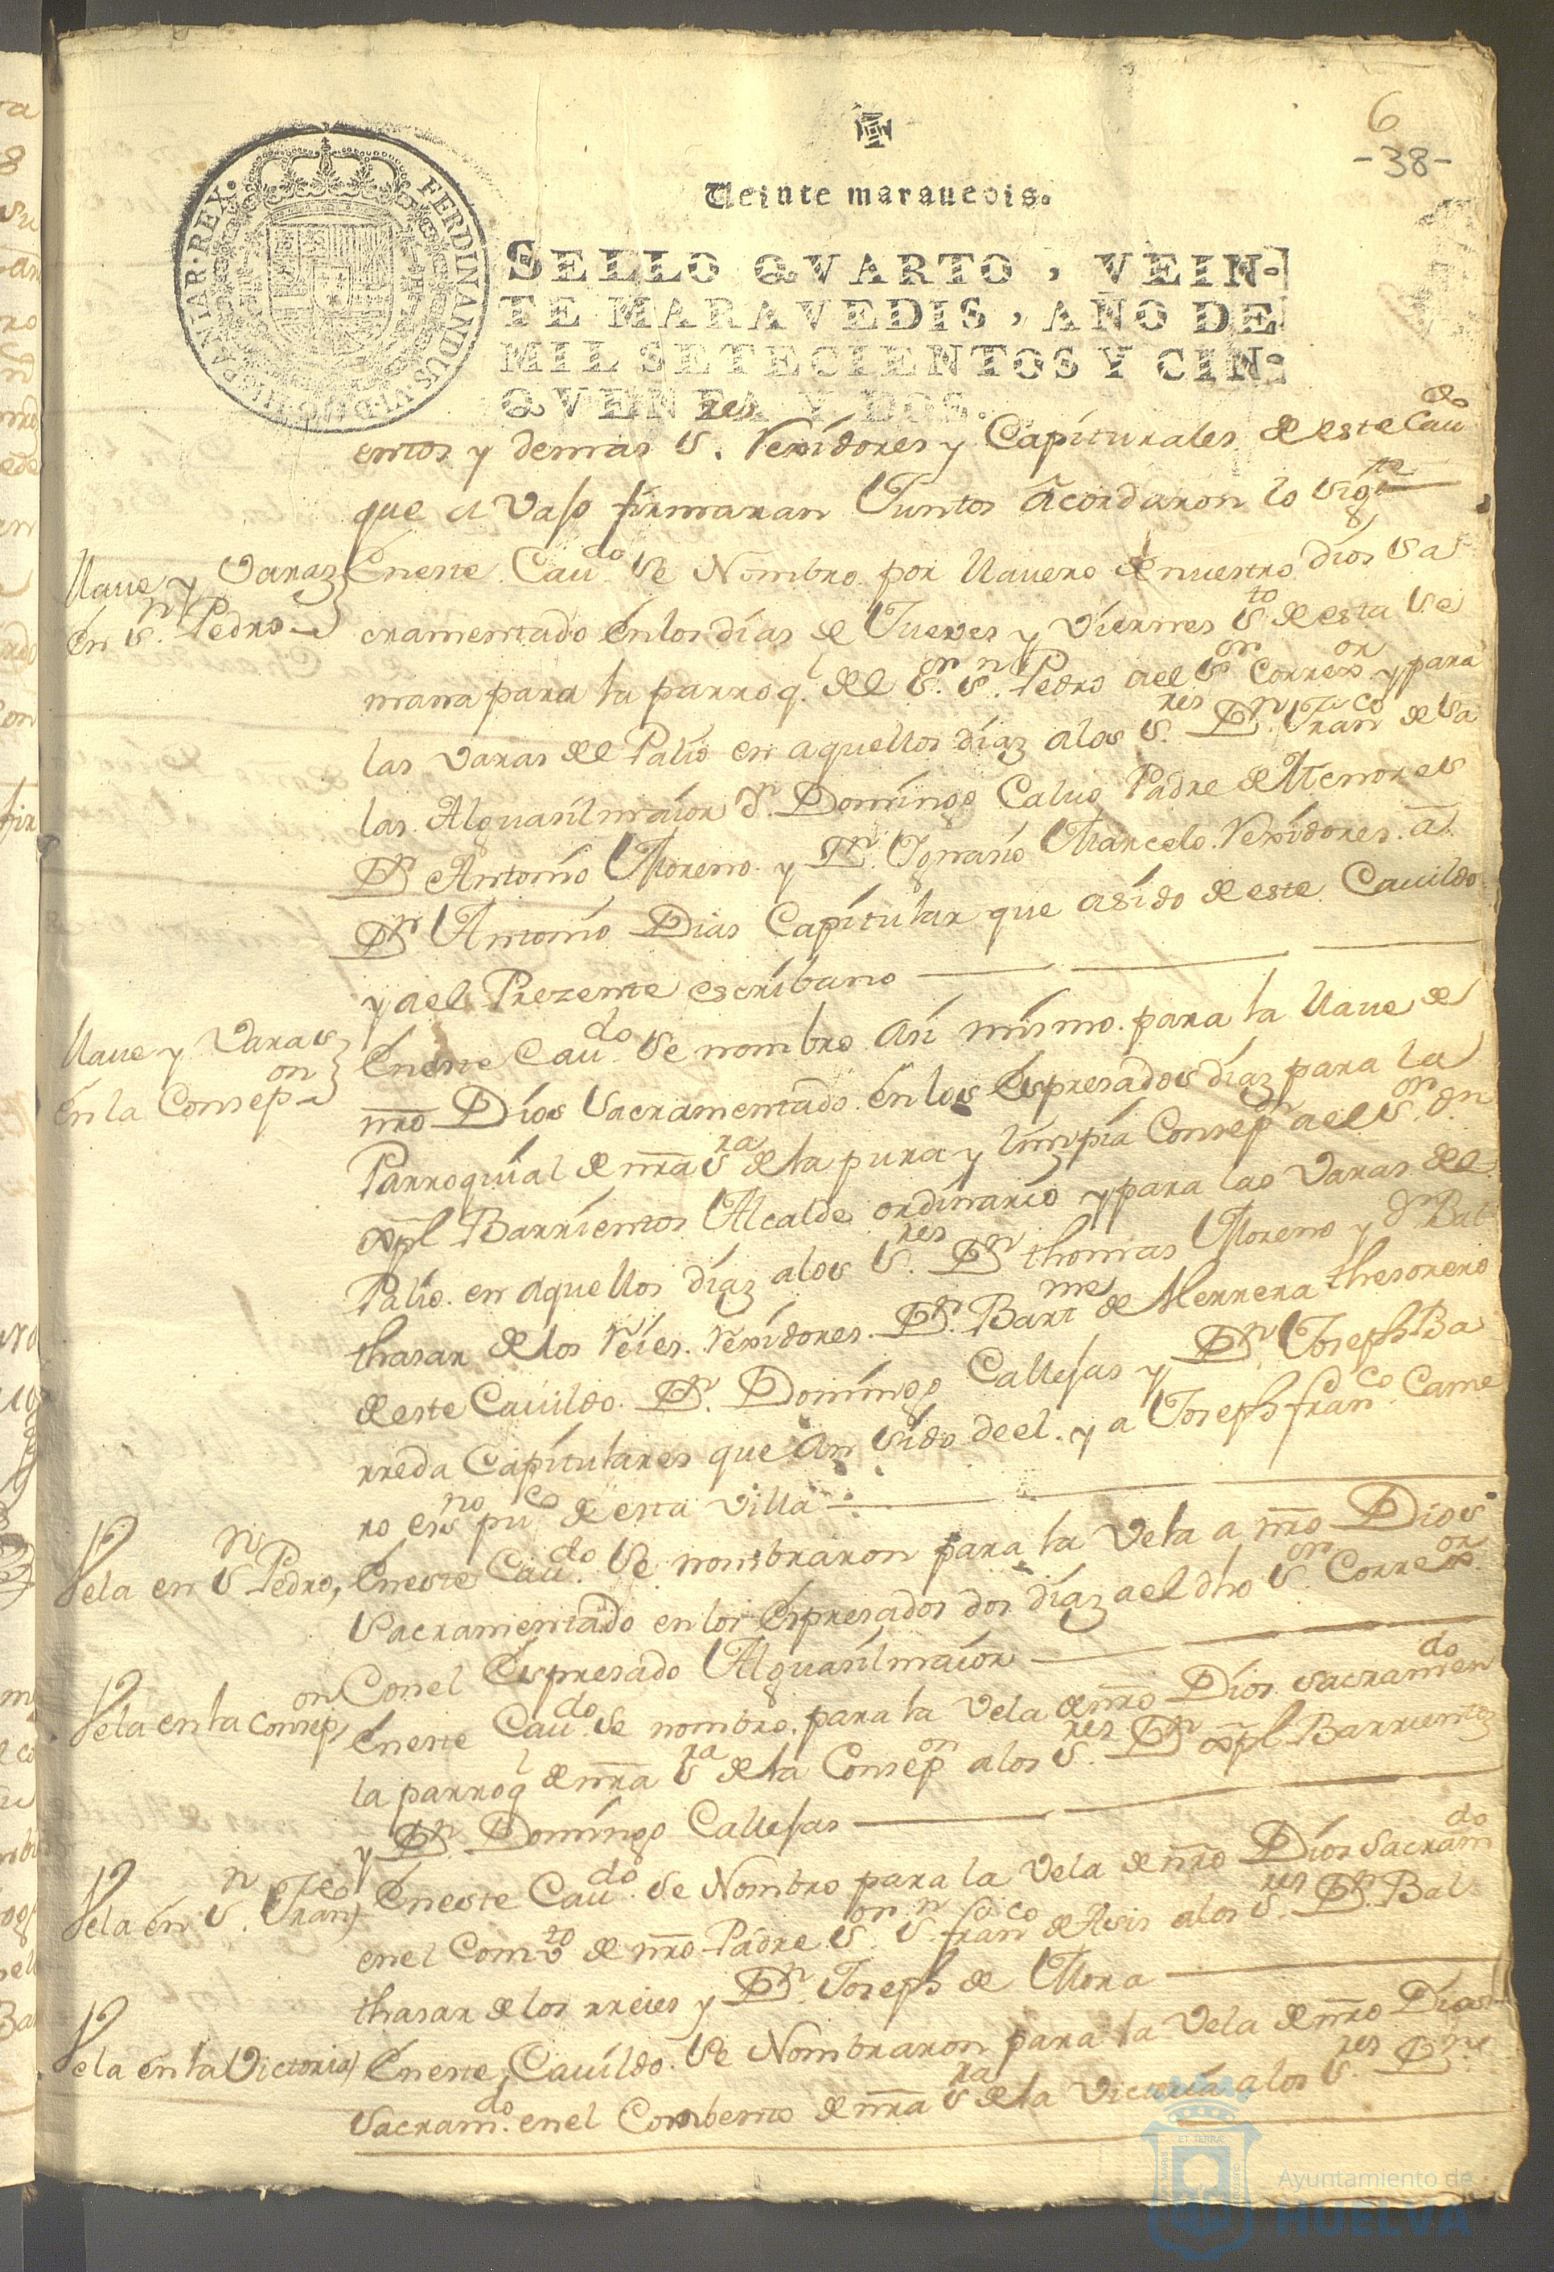 6
-38-
Veinte maravedis.
SELLO QVARTO, VEIN-
TE MARAVEDIS, AÑO DE
MIL SETECIENTOS Y CIN-
QVENTA Y DOS.
FERDINANDUS·VI·D·G·HISPANIAR·REX·
entos y demas S.res Rexidores y Capiturales de este Cau.do
que a vaso firmaran Juntos acordaron lo sig.te
Llaue y Varaz
en S.n Pedro
En este Cau.do se Nombro por llauero de nuestro dios Sa
cramentado en los dias de Jueves y viernes S.to de esta Se
mana para la parroq.l del S.or S.n Pedro a el S.or Correx.or y para
las varas del Palio en aquellos diaz a los S.res D.n Fran.co de Sa
las Alguasilmaior D.n Domingo Caluo Padre de Menores
D.n Antonio Moreno y D.n Ignasio Marcelo Rexidores a
D.n Antonio Dias Capitular que a sido de este Cauildo
y a el Prezente escribano
Llaue y Varas
en la Consep.on
En este Cau.do se nombro asi mismo para la llaue de
nro Dios Sacramentado en los espresados diaz para la
Parroquial de nra S.ra de la pura y limpia Consep.n a el S.or D.n
Xpl Barrientos Alcalde ordinario y para las varas del
Palio en aquellos diaz a los S.res D.n thomas Moreno y d.n Bal
thasar de los Reies Rexidores D.n Bart.me de Herrera thesorero
de este Cauildo D.n Domingo Callejas y D.n Joseph Ba
rreda Capitulares que an sido de el y a Joseph fran.co Came
ro ess.no pu.co de esta villa
Vela en S.n Pedro
En este Cau.do se nombraron para la Vela a nro Dios
Sacramentado en los espresados dos diaz a el dho S.or Correx.or
Con el espresado Alguasilmaior
Vela en la Consep.on
En este Cau.do se nombro para la Vela de nro Dios Sacramen.do
la parroq.l de nra S.ra de la Consep.on a los S.res D.n Xpl Barrientos
y D.n Domingo Callejas
Vela en S.n Fran.co
En este Cau.do se Nombro para la Vela de nro Dios Sacram.do
en el Com.to de nro Padre S.or S.n fran.co de Asis a los S.res D.n Bal
thasar de los rreies y D.n Joseph de Mora
Vela en la Victoria
En este Cauildo se Nombraron para la Vela de nro Dios
Sacram.do en el Combento de nra S.ra de la Victoria a los S.res D.n
Ayuntamiento de
HUELVA